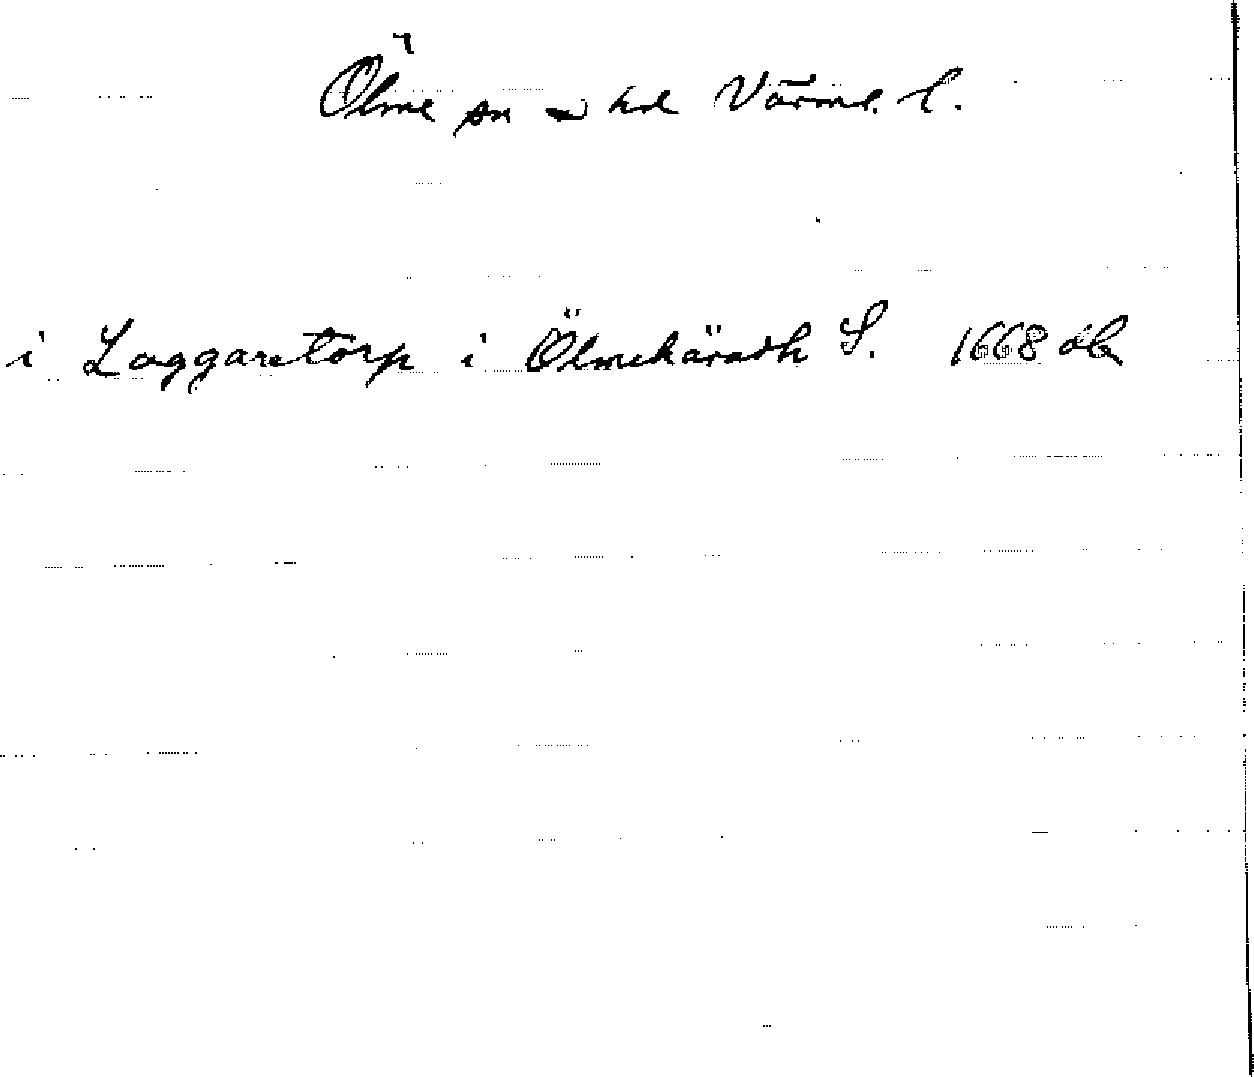 Ölme sn o hd Värml. l.
i Laggaretorp i Ölmehäradh S. 1668 db